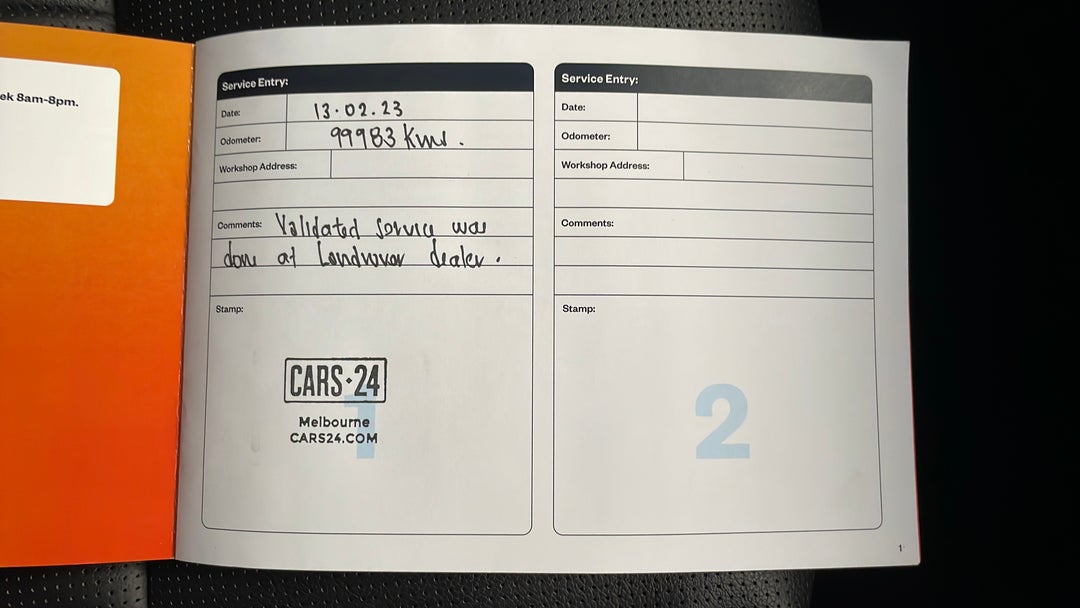 ek 8am-8pm.
Service Entry:
Date: 13.02.23
Odometer: 99983 Kms.
Workshop Address:
Comments: Validated service was
done at Landrover dealer.
Stamp:
CARS·24
1
Melbourne
CARS24.COM
Service Entry:
Date:
Odometer:
Workshop Address:
Comments:
Stamp:
2
1